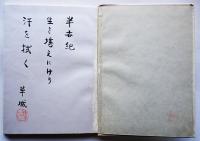 半世紀
生き堪えにけり
汗を拭く
草城